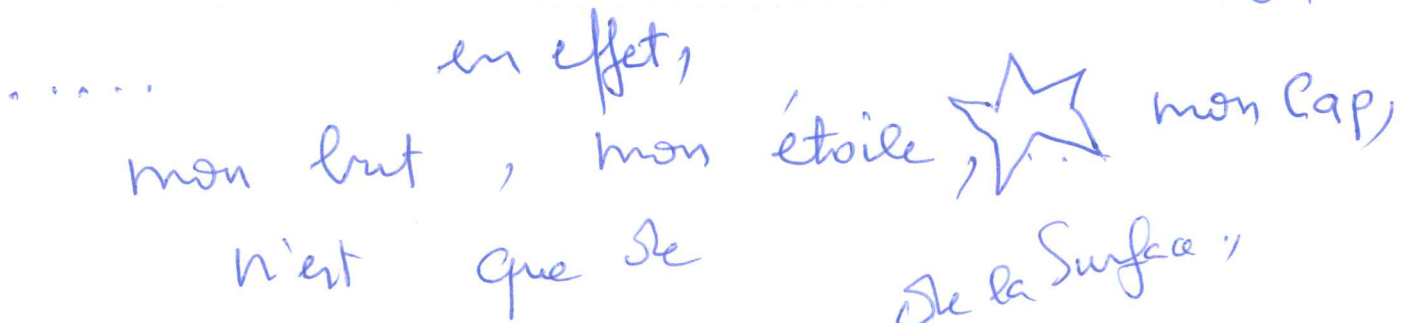 ..... en effet,
mon but, mon étoile, ... mon Cap,
n'est que de
de la Surface,